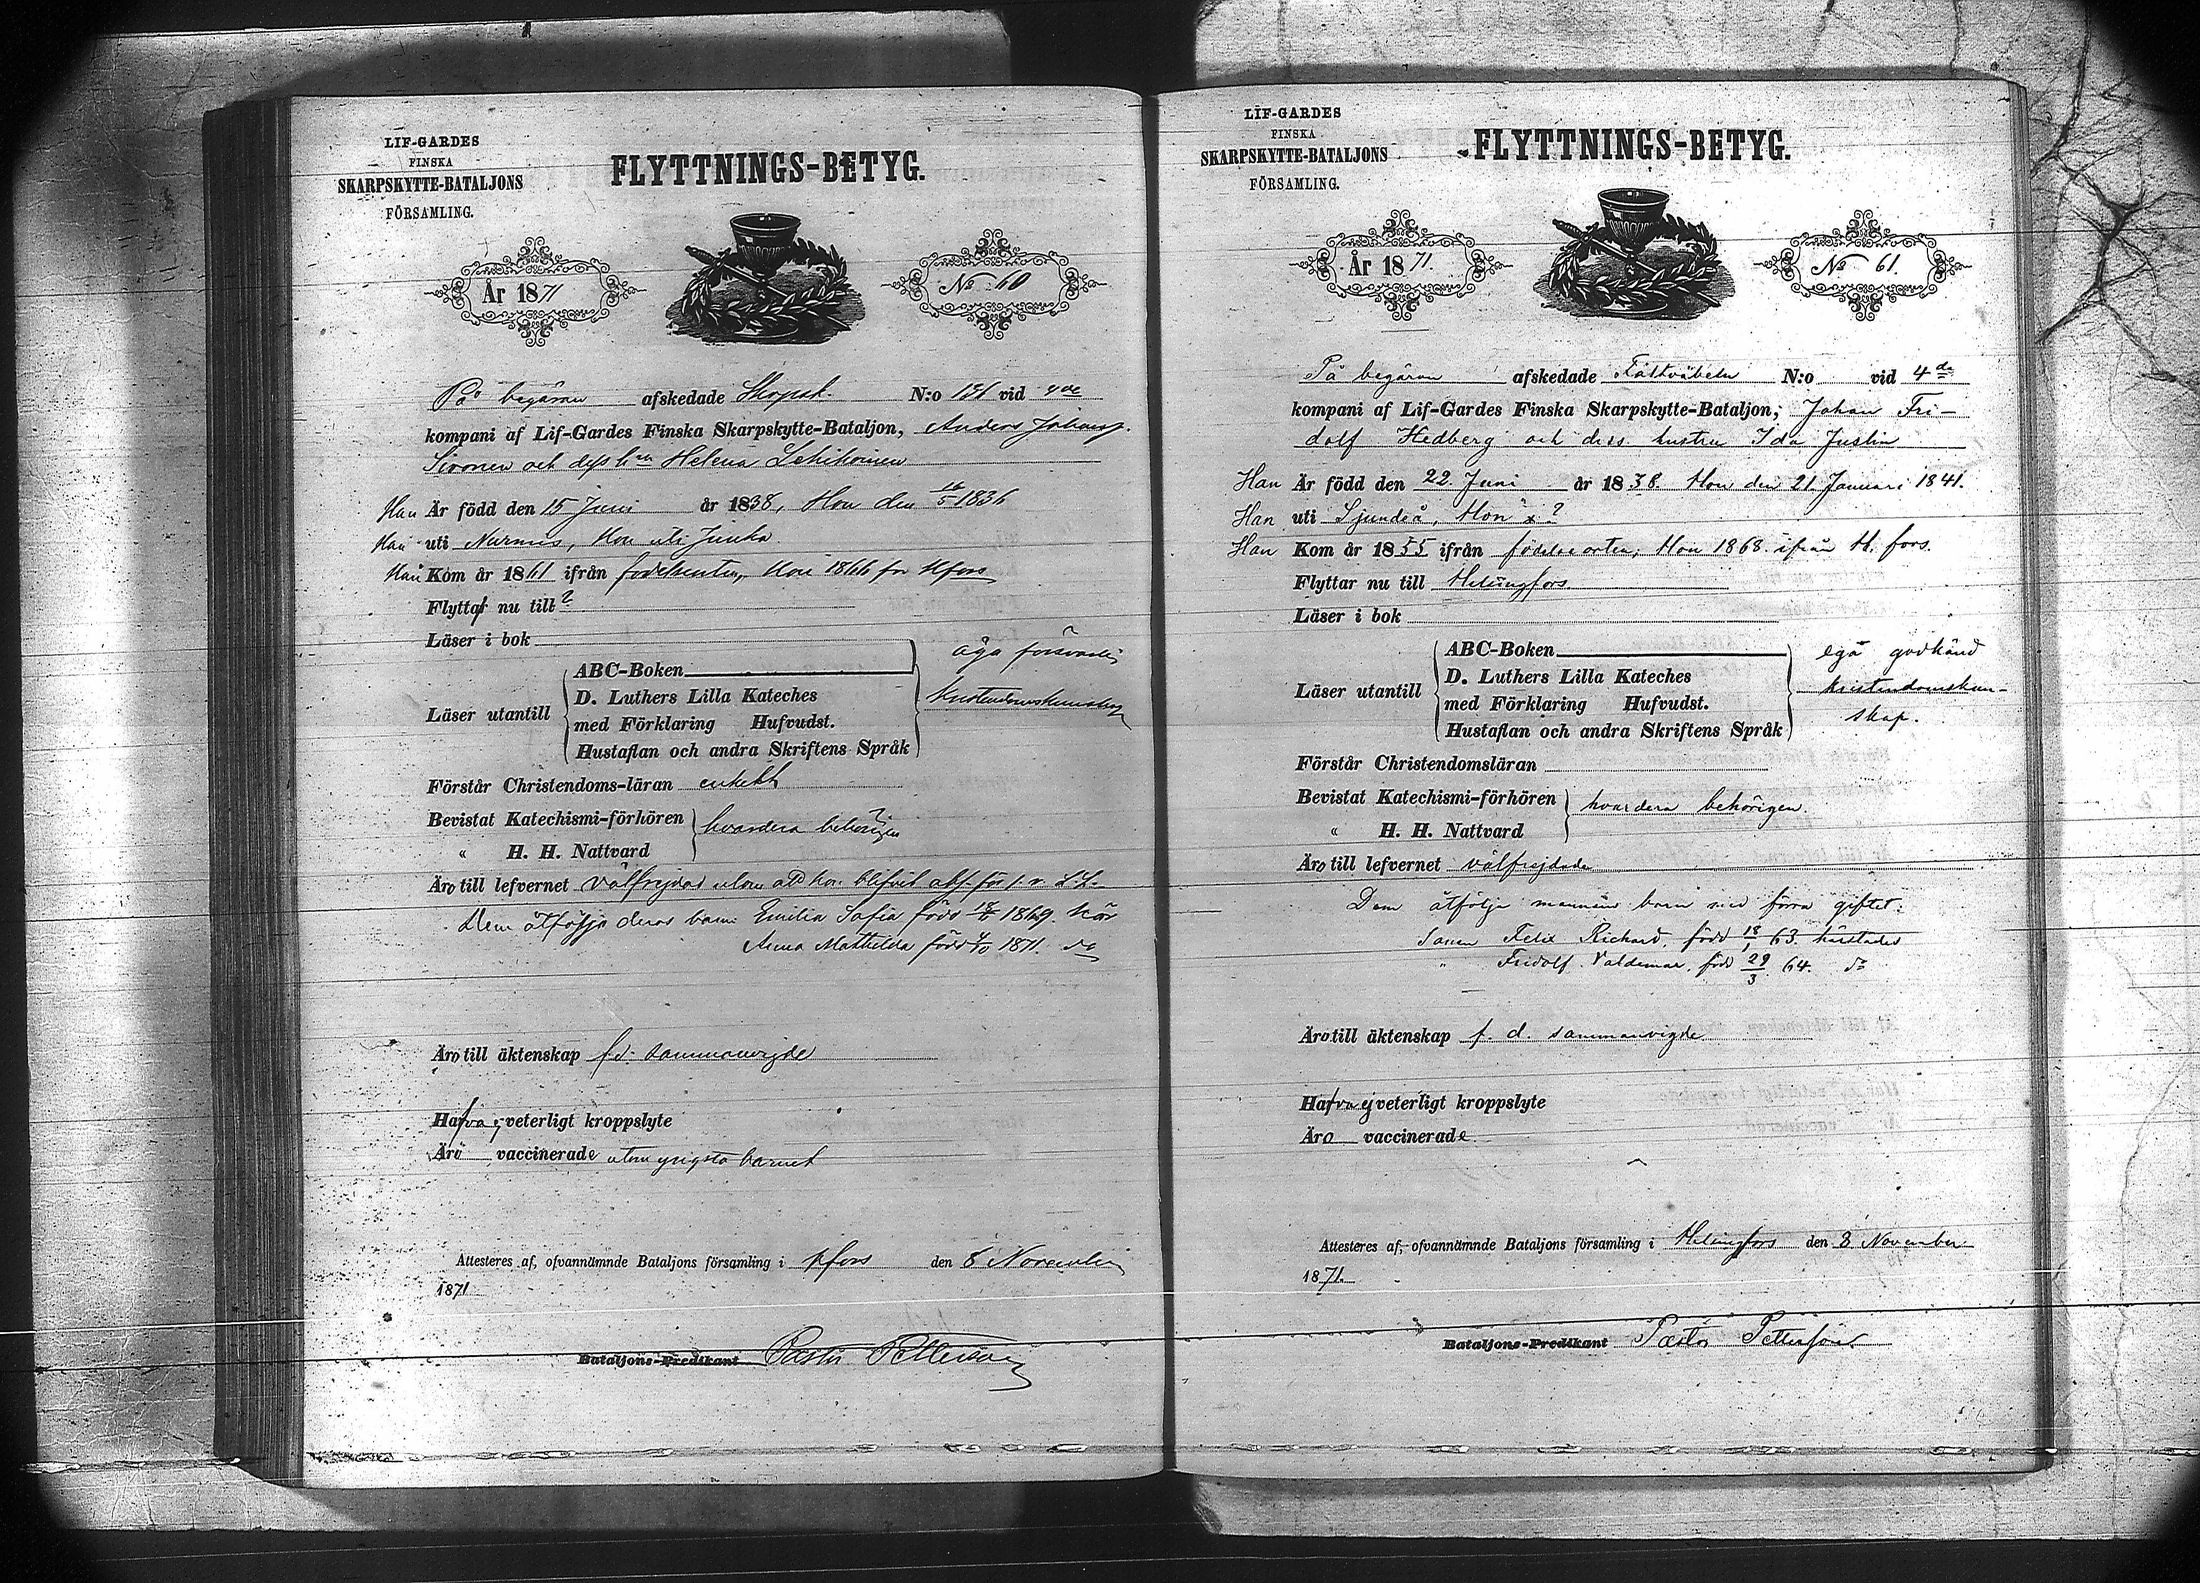 LIF-GARDES
FINSKA
SKARPSKYTTE-BATALJONS
FÖRSAMLING.
FLYTTNINGS-BETYG.
År 1871
No 60
På begäran afskedade Skarpsk. N:o 131 vid 4de
kompani af Lif-Gardes Finska Skarpskytte-Bataljon, Anders Johans.
Sironen och dess h:u Helena Lehikoinen
Han Är född den 15 Juni år 1838, Hon den 1836
Han uti Nurmis, Hon uti Juuka
Han Kom år 1861 ifrån födelseorten, Hon 1866 fr Hfors
Flyttar nu till ?
Läser i bok
Läser utantill
ABC-Boken
D. Luthers Lilla Kateches
med Förklaring Hufvudst.
Hustaflan och andra Skriftens Språk
äga försvarlig
kristendomskunskap
Förstår Christendoms-läran enkelt
Bevistat Katechismi-förhören
« H. H. Nattvard
hvardera behörigen
Äro till lefvernet välfrejdad utom att hon blifvit för 1 r. L.L.
Dem åtfölja deras barn: Emilia Sofia född 1869 Hfors
Anna Mathilda född 1871. do
Äro till äktenskap f.d. sammanvigde
Hafva ej veterligt kroppslyte
Äro vaccinerade utom yngsta barnet
Attesteres af, ofvannämnde Bataljons församling i Hfors den 8 November
1871
Bataljons-Predikant Pastor Pettersson
LIF-GARDES
FINSKA
SKARPSKYTTE-BATALJONS
FÖRSAMLING.
FLYTTNINGS-BETYG.
År 1871.
No 61.
På begäran afskedade Fältväbeln N:o vid 4de
kompani af Lif-Gardes Finska Skarpskytte-Bataljon, Johan Fri-
dolf Hedberg och dess hustru Ida Justin
Han Är född den 22 Juni år 1838. Hon den 21 Januari 1841.
Han uti Sjundeå, Hon i ?
Han Kom år 1855 ifrån födelseorten, Hon 1868 ifrån H.fors.
Flyttar nu till Helsingfors
Läser i bok
Läser utantill
ABC-Boken
D. Luthers Lilla Kateches
med Förklaring Hufvudst.
Hustaflan och andra Skriftens Språk
ega godkänd
kristendomskun-
skap.
Förstår Christendomsläran
Bevistat Katechismi-förhören
« H. H. Nattvard
hvardera behörigen.
Äro till lefvernet välfrejdade
Dem åtfölja mannens barn med förra giftet:
Sonen Felix Richard, född 18/1 63. härstädes
" Fridolf Valdemar, född 29/3 64. do
Äro till äktenskap f. d. sammanvigde
Hafva ej veterligt kroppslyte
Äro vaccinerade
Attesteres af, ofvannämnde Bataljons församling i Helsingfors den 8 November
1871.
Bataljons-Predikant Pastor Pettersson